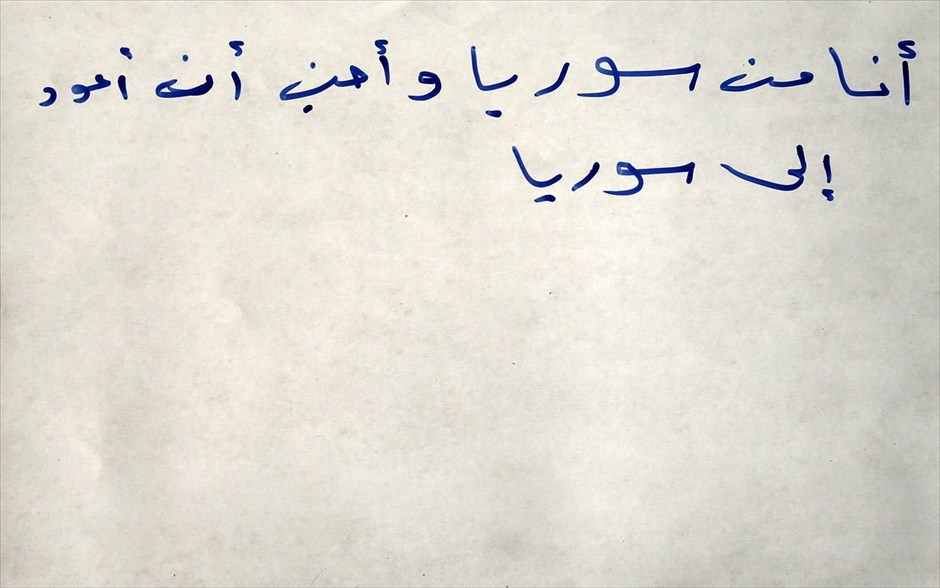 أنا من سوريا و أحب أن أعود
إلى سوريا